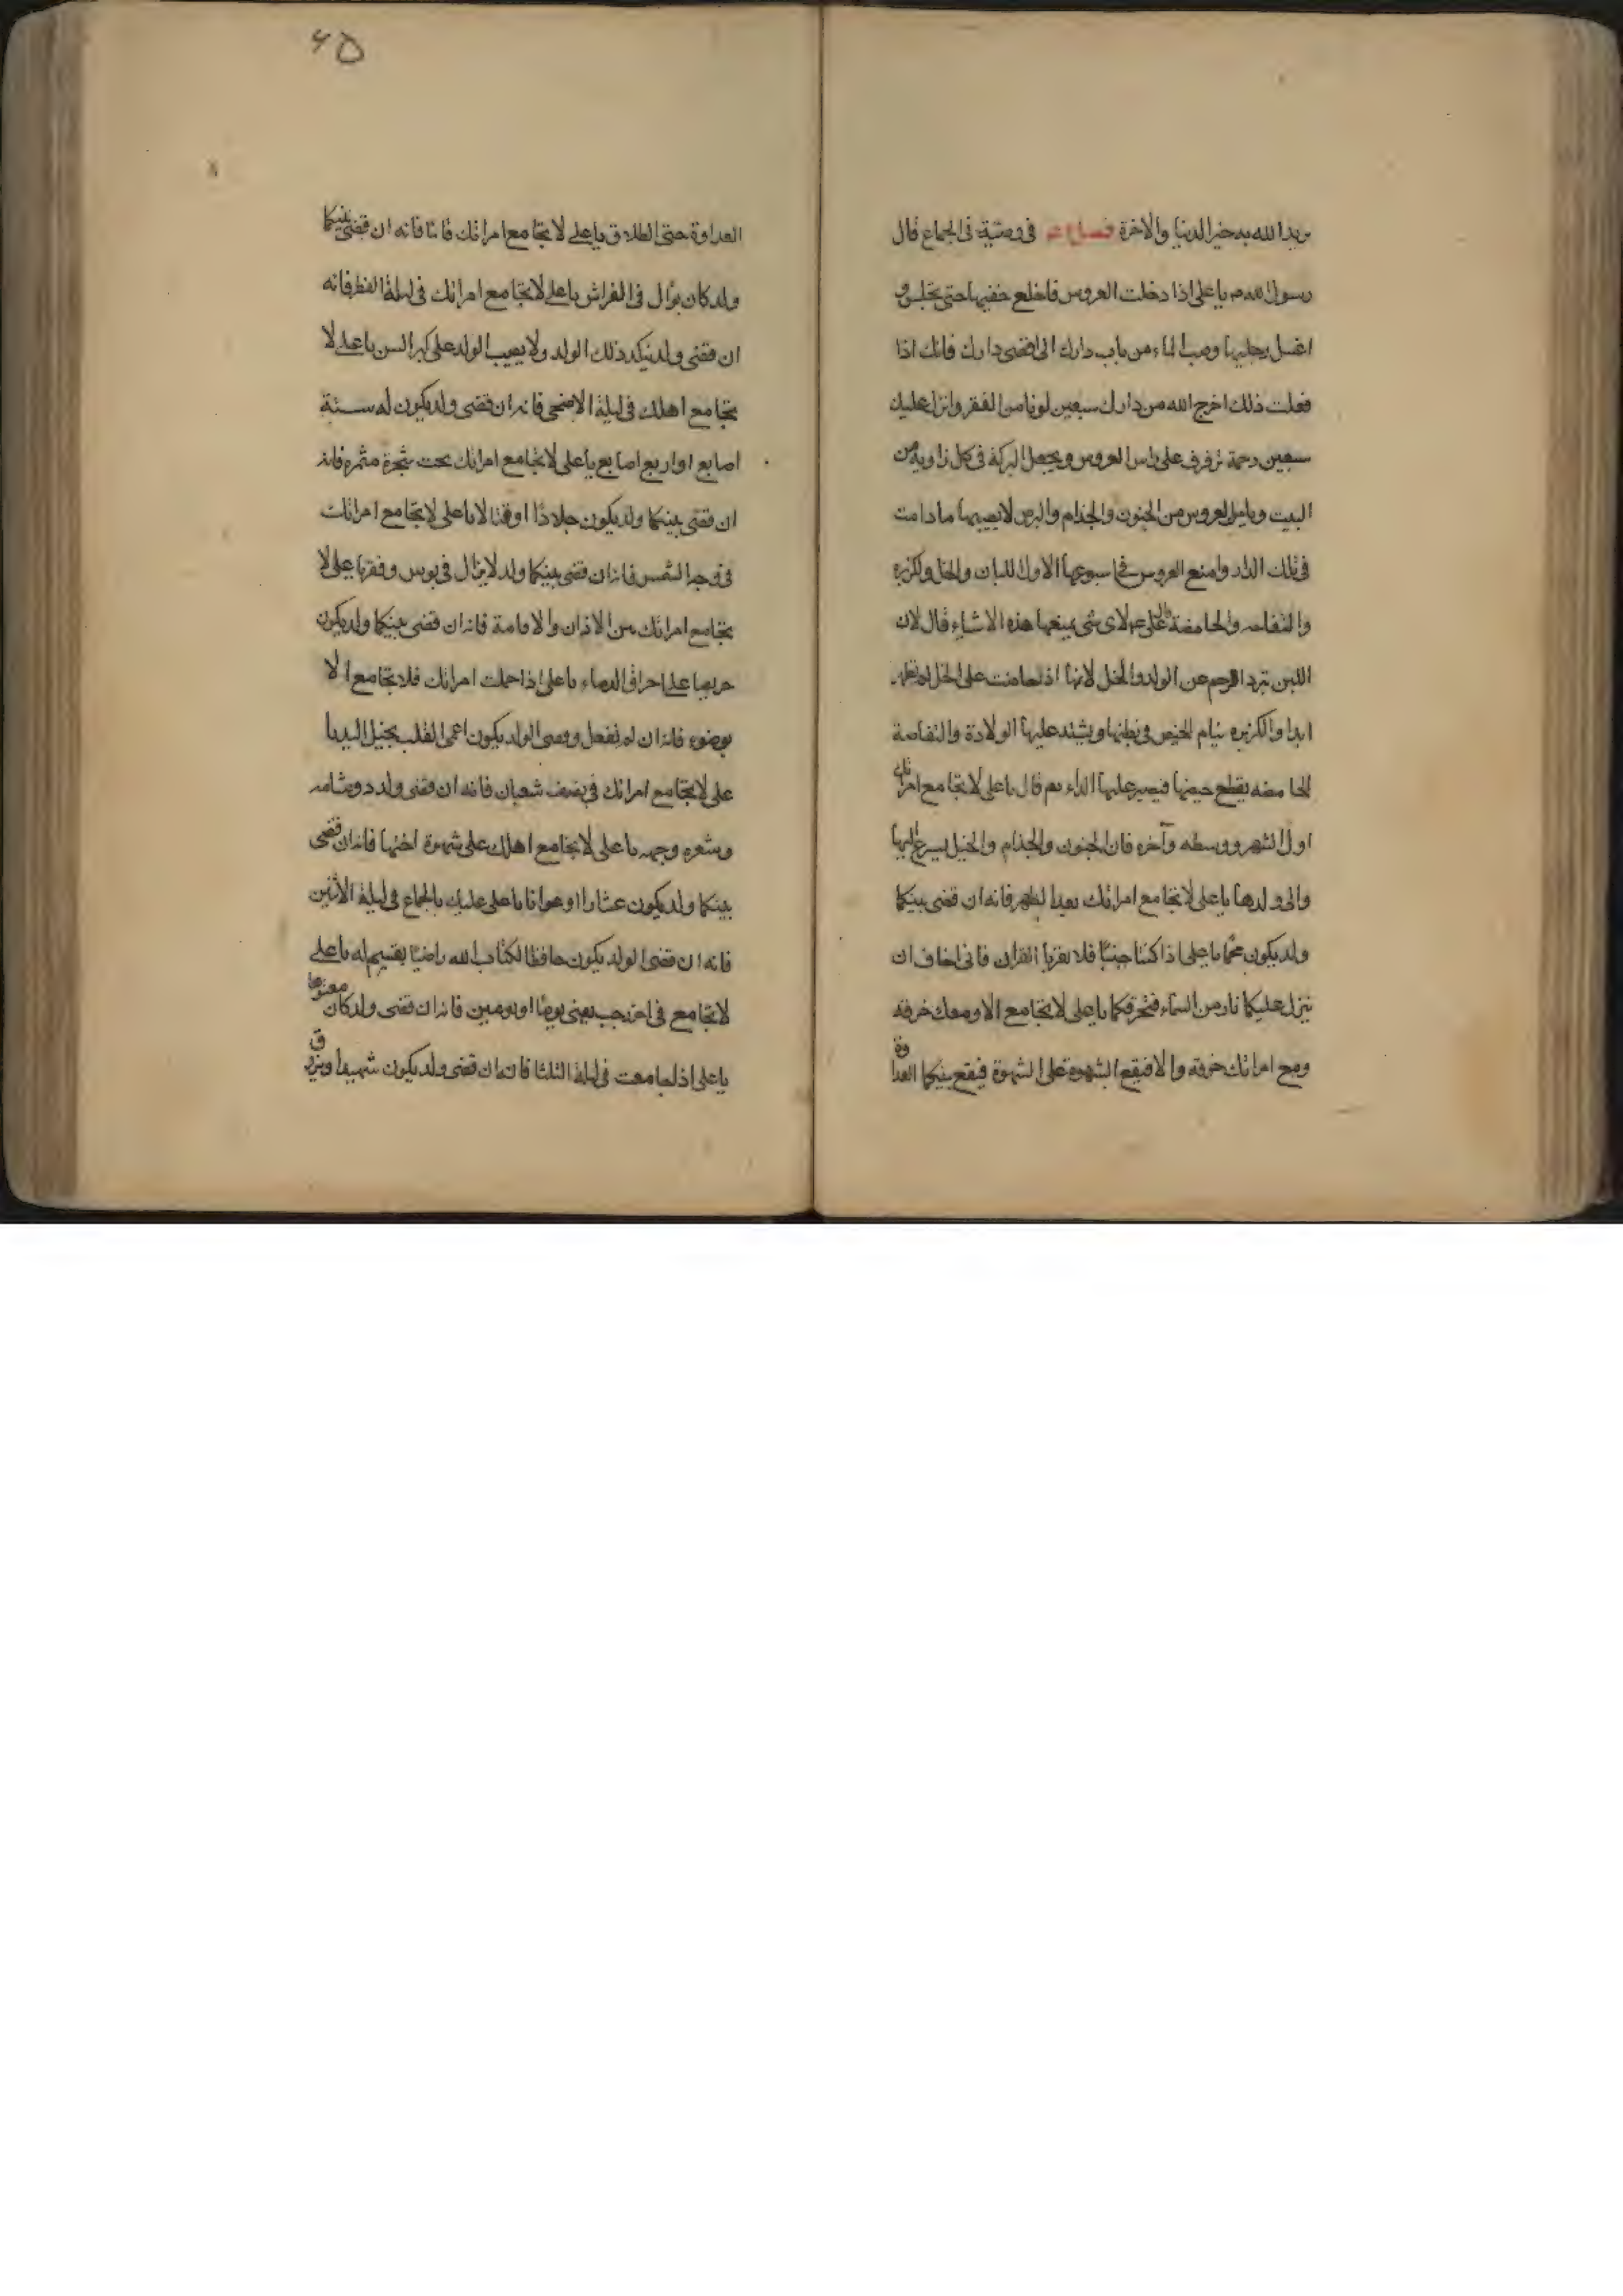 يريد الله به خير الدنيا والاخرة فصل في وصية في الجماع قال
رسول الله ص يا على اذا دخلت العروس فاخلع خفيها حتى تجلس و
اغسل رجليها وصب الماء من باب دارك الى اقصى دارك فانك اذا
فعلت ذلك اخرج الله من دارك سبعين لونا من الفقر وانزل عليك
سبعين رحمة ترفرف على راس العروس ويجعل البركة في كل زاوية من
البيت ويامن العروس من الجنون والجذام والبرص لا يصيبها ما دامت
في تلك الدار وامنع العروس في اسبوعها الاول اللبان والخل والكزبره
والتفاحه والحامضة قال على عم لاى شى يمنعها هذه الاشياء قال لان
اللبن تبرد الرحم عن الولد والخل لانها اذا حاضت على الخل لم تطهر
ابدا والكزبره ينام الحيض في بطنها ويشتد عليها الولادة والتفاحة
الحامضه يقطع حيضها فيصير عليها الداء ثم قال يا على لا تجامع امراتك
اول الشهر ووسطه وآخره فان الجنون والجذام والخبل يسرع اليها
والى ولدها يا على لا تجامع امراتك بعد الظهر فانه ان قضى بينكما
ولد يكون يا على اذا كنتما جنبًا فلا تقربا القران فانى اخاف ان
ينزل عليكما نار من السماء فتحرقكما يا على لا تجامع الا ومعك خرقه
ومع امراتك خرقه والا فتقع الشهوة على الشهوة فيقع بينكما العداوة
٤٥
العداوة حتى الطلاق يا على لا تجامع امراتك قائما فانه ان قضى بينكما
ولد كان بوّال في الفراش يا على لا تجامع امراتك في ليلة الفطر فانه
ان قضى ولد ينكد ذلك الولد ولا يصيب الولد على كبر السن يا على لا
تجامع اهلك في ليلة الاضحى فانه ان قضى ولد يكون له ستة
اصابع او اربع اصابع يا على لا تجامع امراتك تحت شجرة مثمره فانه
ان قضى بينكما ولد يكون جلادًا او قتالا يا على لا تجامع امراتك
في وجه الشمس فانه ان قضى بينكما ولد لا يزال في بوس وفقر يا على لا
تجامع امراتك بين الاذان والاقامة فانه ان قضى بينكما ولد يكون
حريصا على احراق الدماء يا على اذا حملت امراتك فلا تجامع الا
بوضوء فانه ان لم تفعل وقضى الولد يكون اعمى القلب بخيل اليد يا
على لا تجامع امراتك في نصف شعبان فانه ان قضى ولد ذو شامه
وشعره وجهه يا على لا تجامع اهلك على شهوة اختها فانه ان قضى
بينكما ولد يكون عشارا او عوانا يا على عليك بالجماع في ليلة الاثنين
فانه ان قضى الولد يكون حافظا لكتاب الله راضيًا بقسيم له يا على
لا تجامع في اخر رجب يعنى يومًا او يومين فانه ان قضى ولد كان معتوها
يا على اذا جامعت في ليلة الثلثا فانه ان قضى ولد يكون شهيدا ويرزق